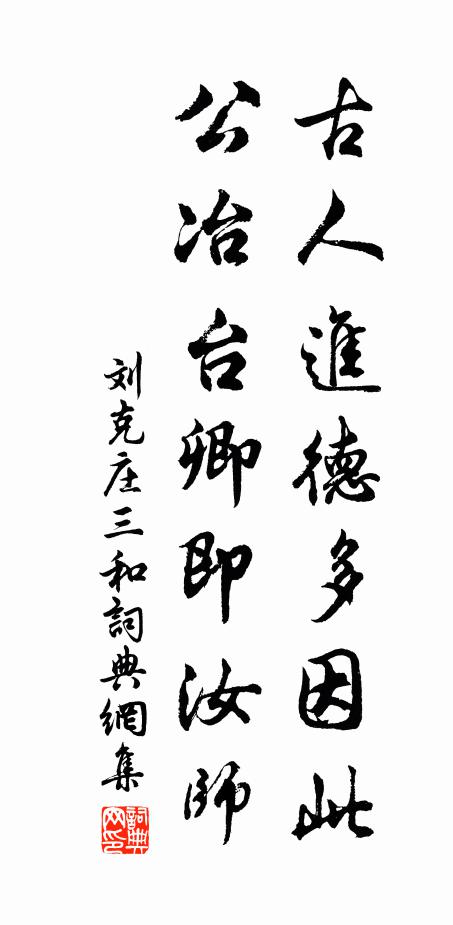 古人進德多因此
公冶台卿即汝師
刘克庄三和詞典網集
詞典网印